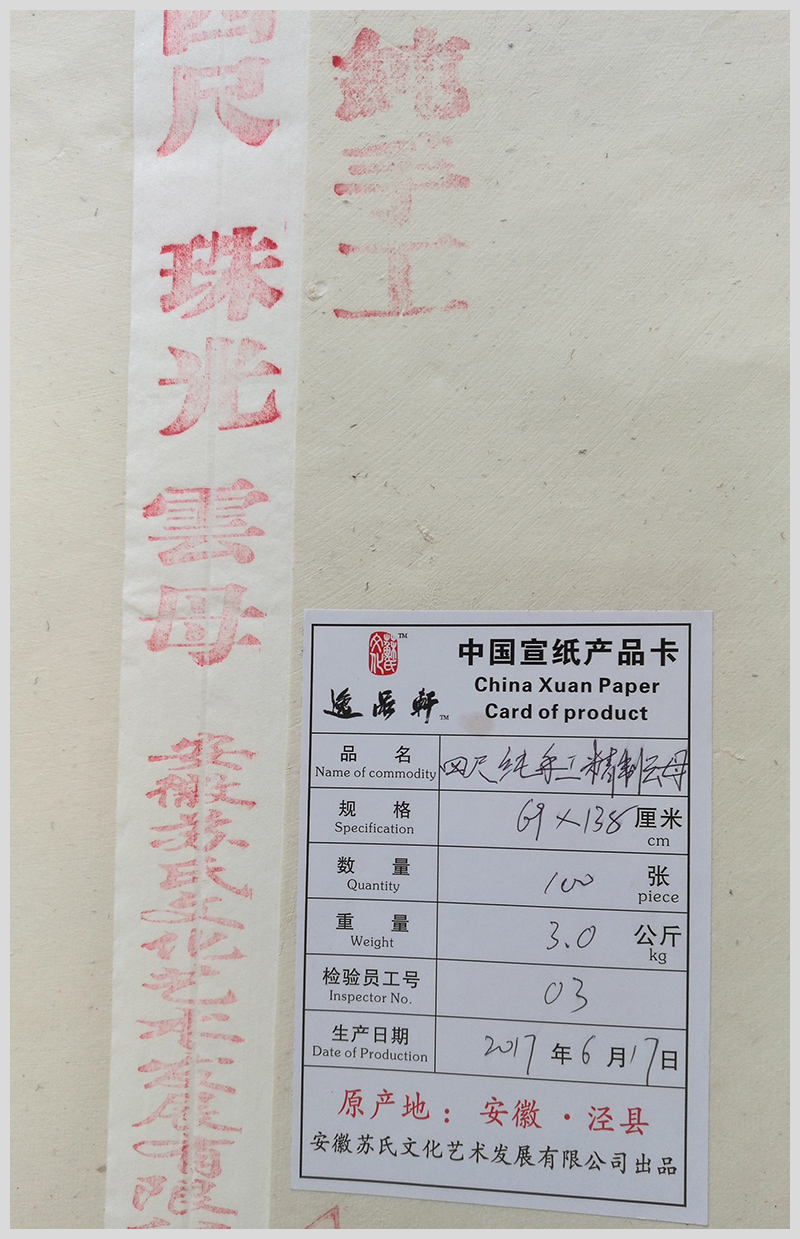 四尺 珠光 雲母 安徽苏氏文化艺术发展有限
纯手工
苏氏文化
TM
逸品軒
TM
中国宣纸产品卡
China Xuan Paper
Card of product
品 名
Name of commodity
四尺纯手工精制云母
规 格
Specification
69×138 厘米
cm
数 量
Quantity
100 张
piece
重 量
Weight
3.0 公斤
kg
检验员工号
Inspector No.
03
生产日期
Date of Production
2017 年 6 月 17 日
原产地：安徽·泾县
安徽苏氏文化艺术发展有限公司出品